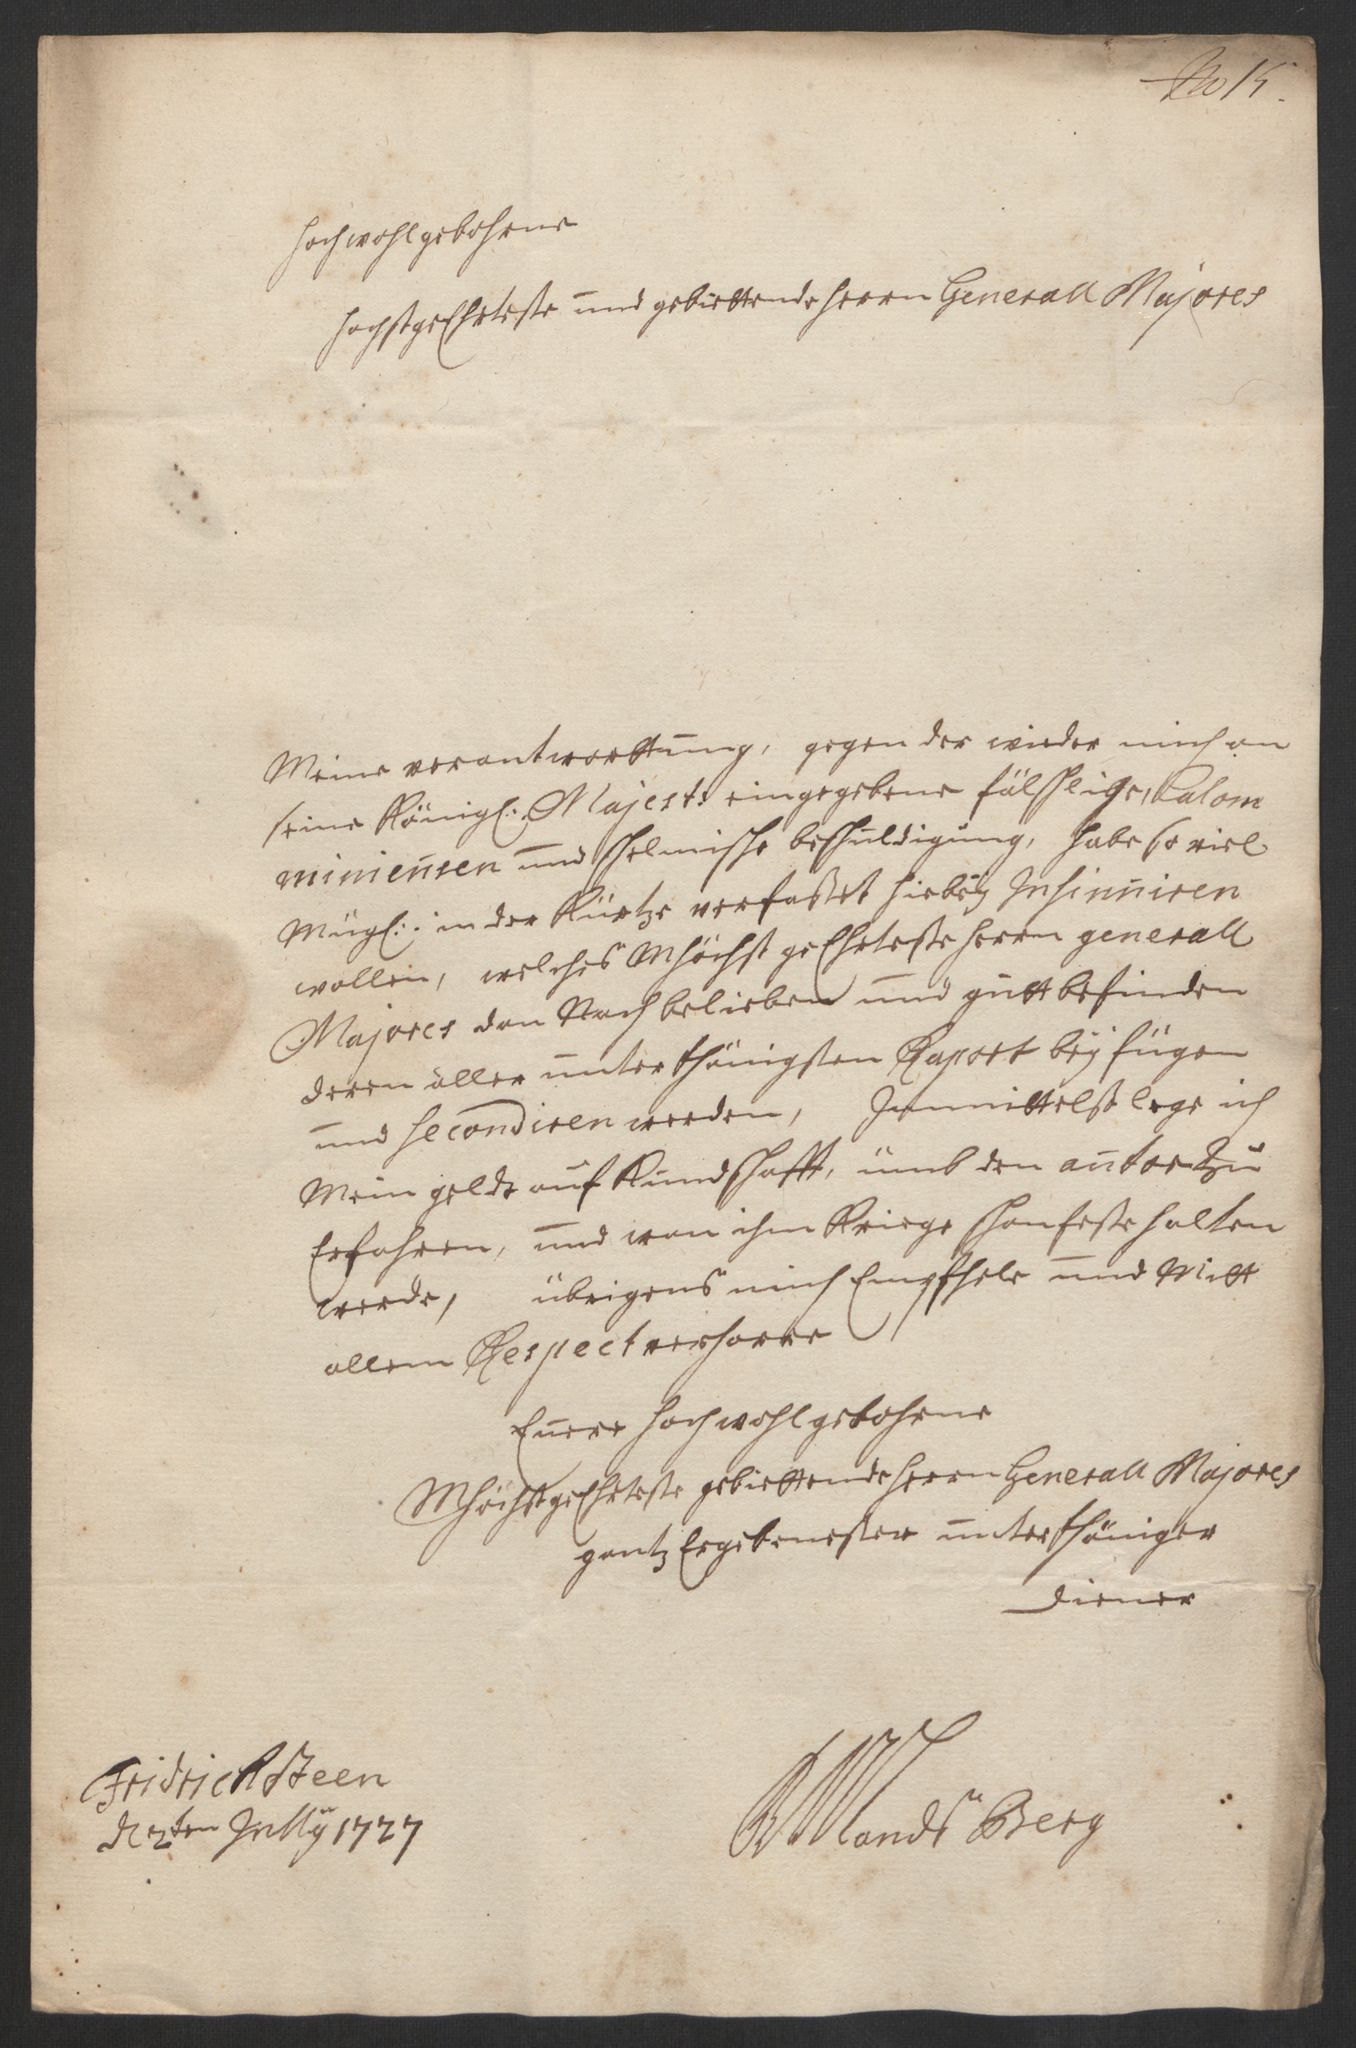 No 15.
Hochwohlgebohrne
Hochstgeehrteste und gebiettende Herrn Generall Majores
Meine verantworttung, gegen der wieder mich an
seine Königl: Majest: eingegebene fälschlige, Calom
miniensen und schelmische beschuldigung, habe so viel
Mügl: in der Kürtze verfasset hiebeÿ Insinuiren
wollen, welches Mhöchst geEhrteste Herrn generall
Majores dan Nach belieben und gutt befinden
deren aller unterthänigsten Raport beÿ fügen
und secondiren werden, Immittelst lege ich
Mein geldt auf Kundschafft, umb den autor Zu
Erfahren, und wan ihm Kriege schon feste halten
werde, übrigens mich Empfhele und Mitt
allem Respect verharre
Euere Hochwohlgebohrne
Mhöchstgeehrteste gebiettende Herrn Generall Majores
gantz Ergebenester unterthäniger
Diener
Fridrichsteen
d 2ten Jully 1727
Landsberg